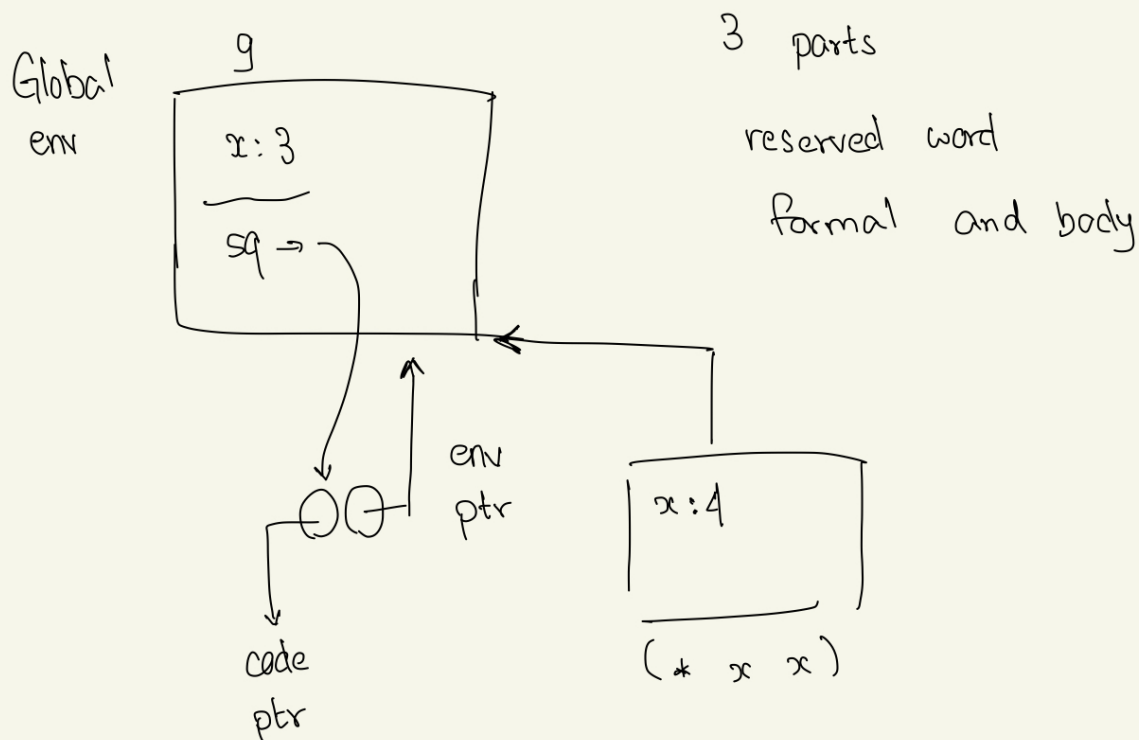 Global
env
g
x: 3
sq
3 parts
reserved word
formal and body
env
ptr
code
ptr
x: 4
(* x x)